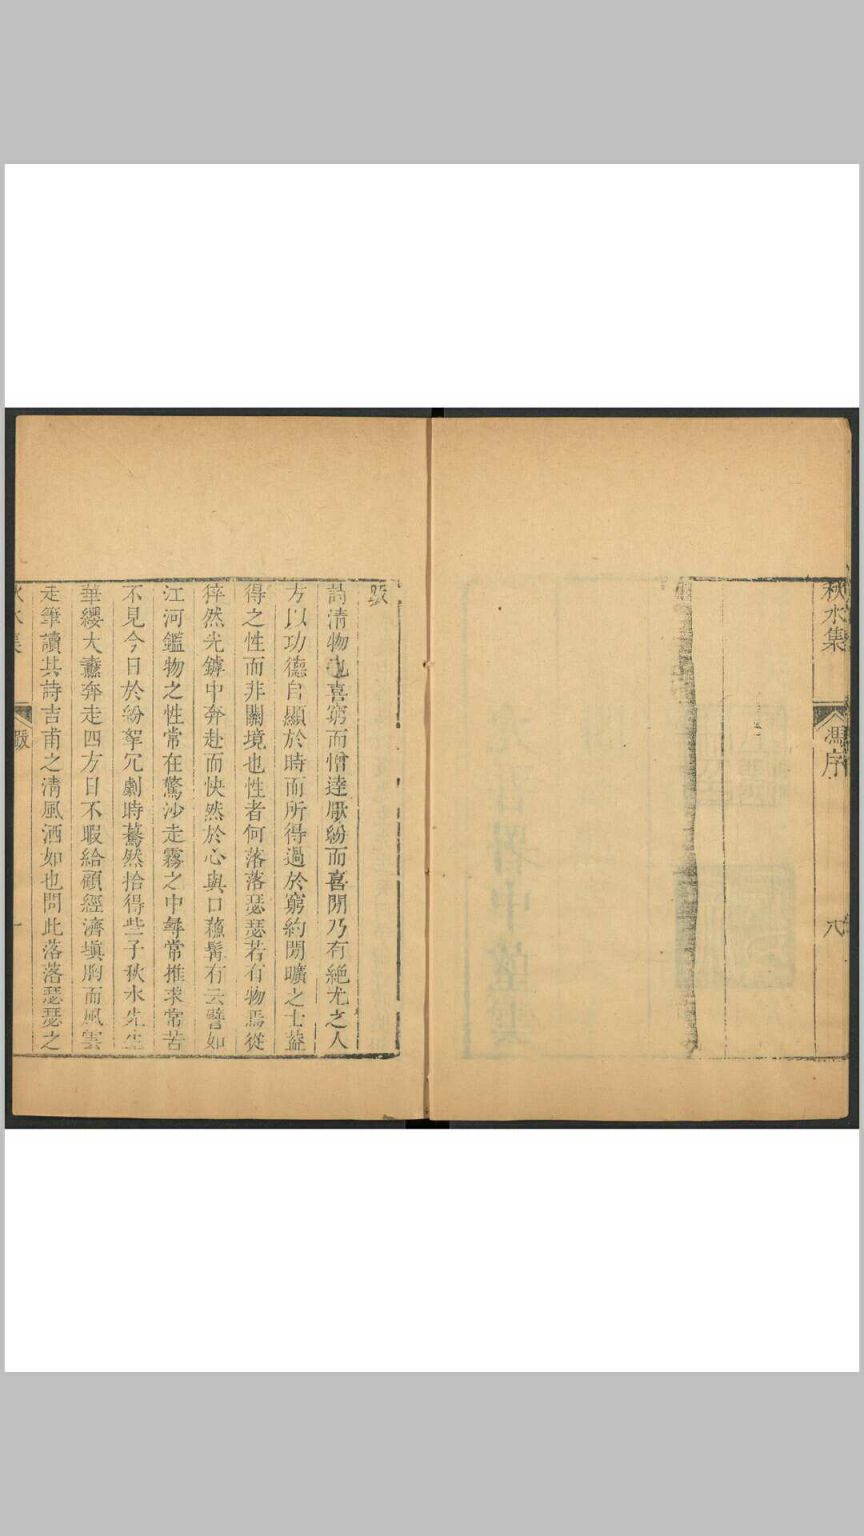 秋水集
馮序
八
跋
詩清物也喜窮而憎達厭紛而喜閒乃有絕尤之人
方以功德自顯於時而所得過於窮約閒曠之士葢
得之性而非關境也性者何落落瑟瑟若有物焉從
猝然光鎼中奔赴而快然於心與口蘓髯有云譬如
江河鑑物之性常在驚沙走霧之中每常推求常苦
不見今日於紛挐冗劇時驀然拾得些子秋水先生
華纓大纛奔走四方日不暇給顧經濟塡胸而風雲
走筆讀其詩吉甫之清風洒如也問此落落瑟瑟之
秋水集
跋
一